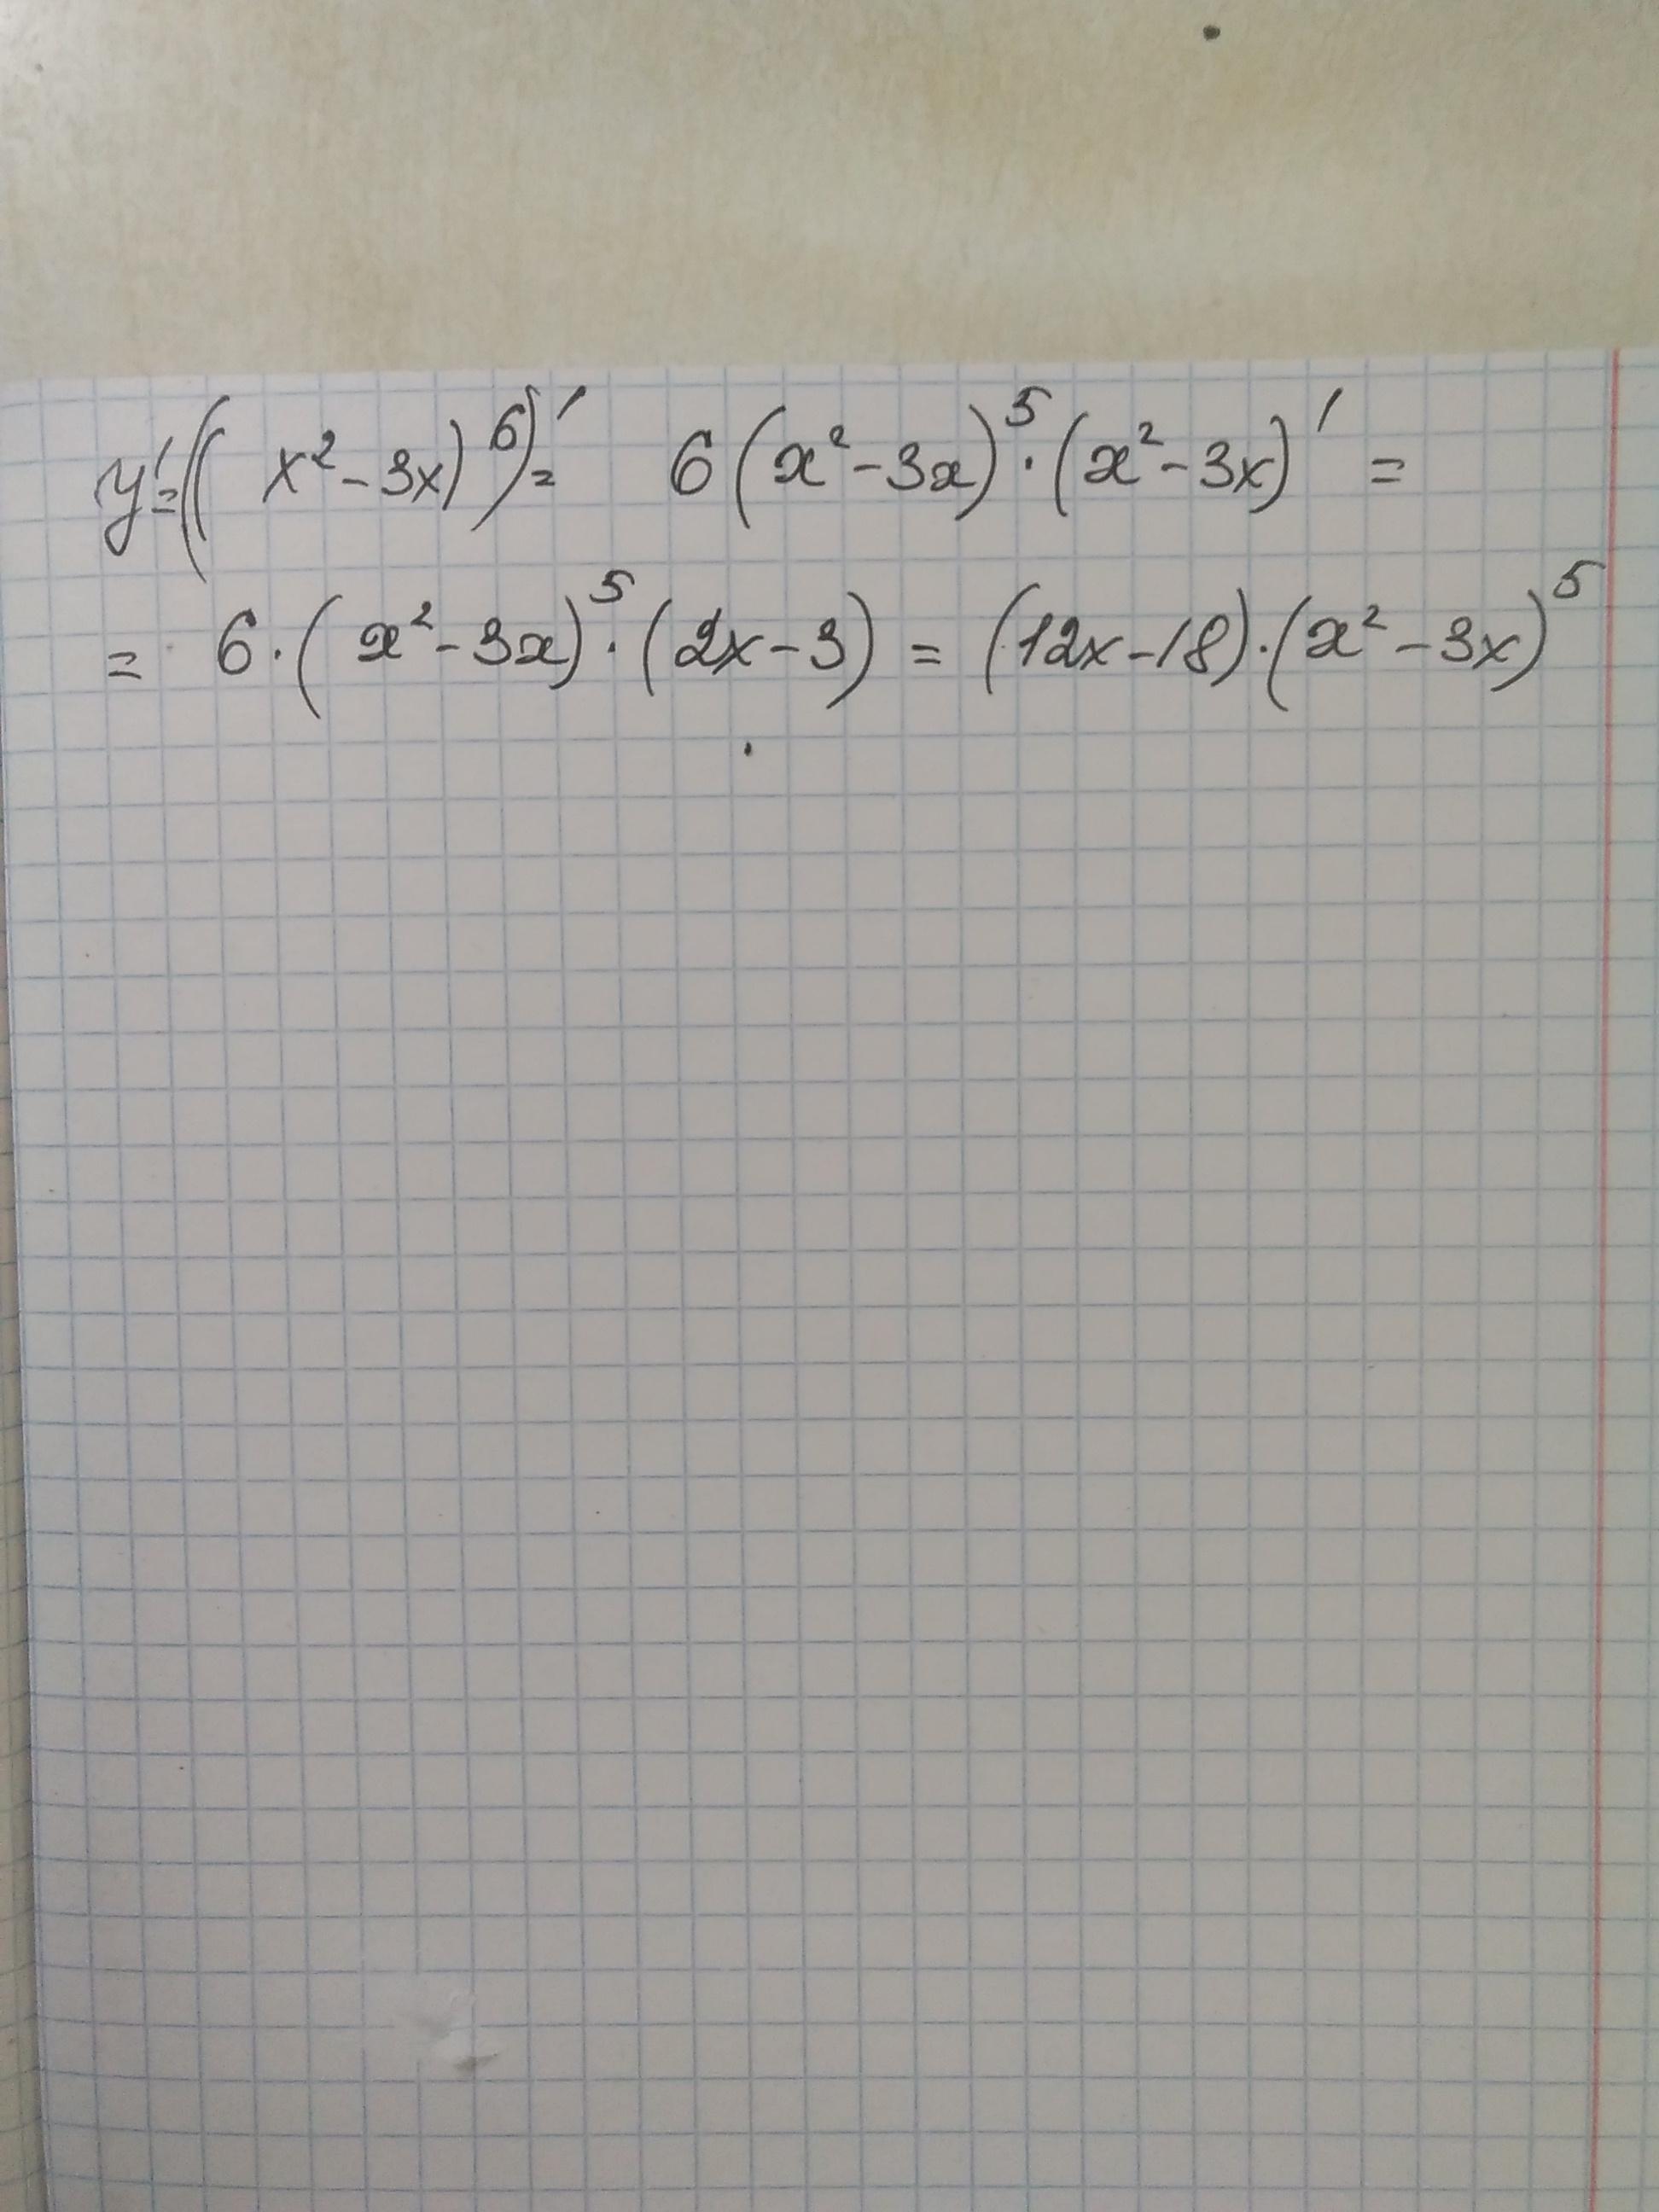 y'=((x²-3x)⁶)'= 6(x²-3x)⁵·(x²-3x)' =
= 6·(x²-3x)⁵·(2x-3) = (12x-18)·(x²-3x)⁵